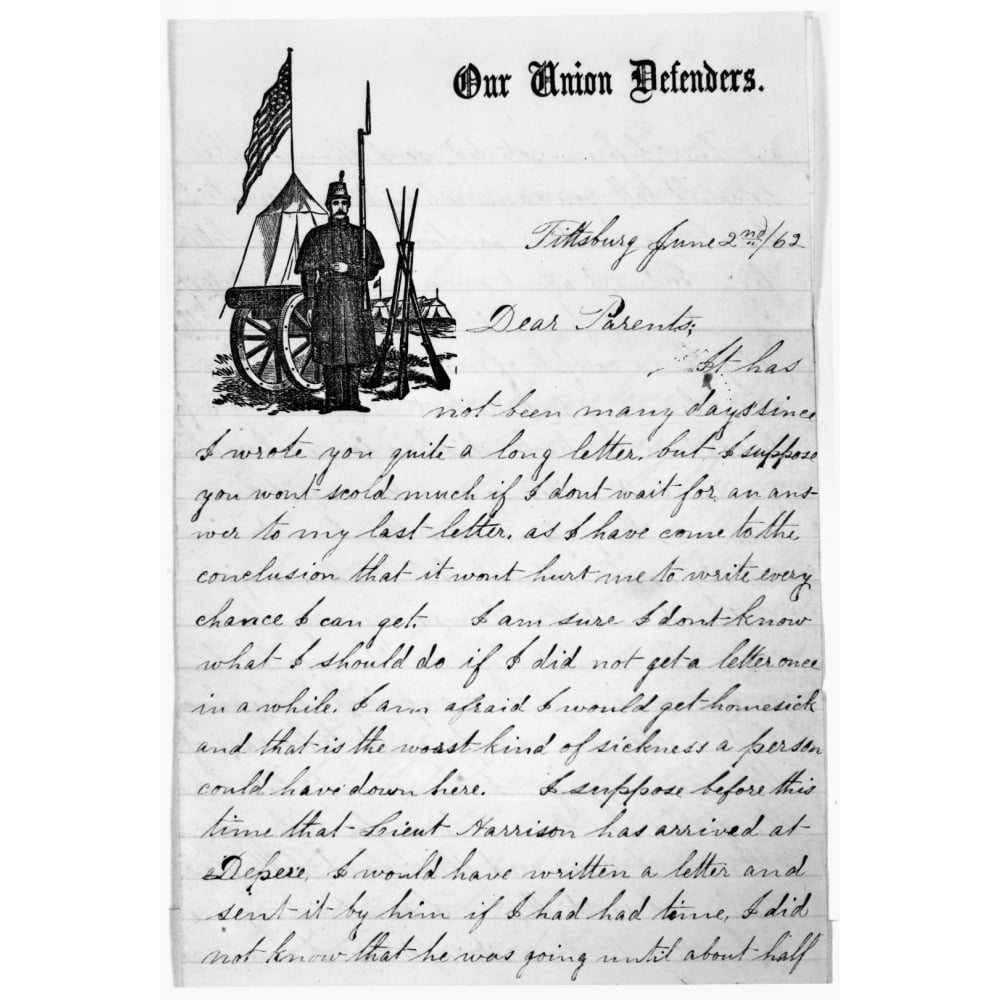 Our Union Defenders.
Pittsburg June 2nd/62
Dear Parents;
It has
not been many days since
I wrote you quite a long letter, but I suppose
you wont scold much if I dont wait for an ans-
wer to my last letter. as I have come to the
conclusion that it wont hurt me to write every
chance I can get. I am sure I dont know
what I should do if I did not get a letter once
in a while. I am afraid I would get homesick
and that is the worst kind of sickness a person
could have down here. I suppose before this
time that Lieut Harrison has arrived at
Depere, I would have written a letter and
sent it by him if I had had time, I did
not know that he was going until about half